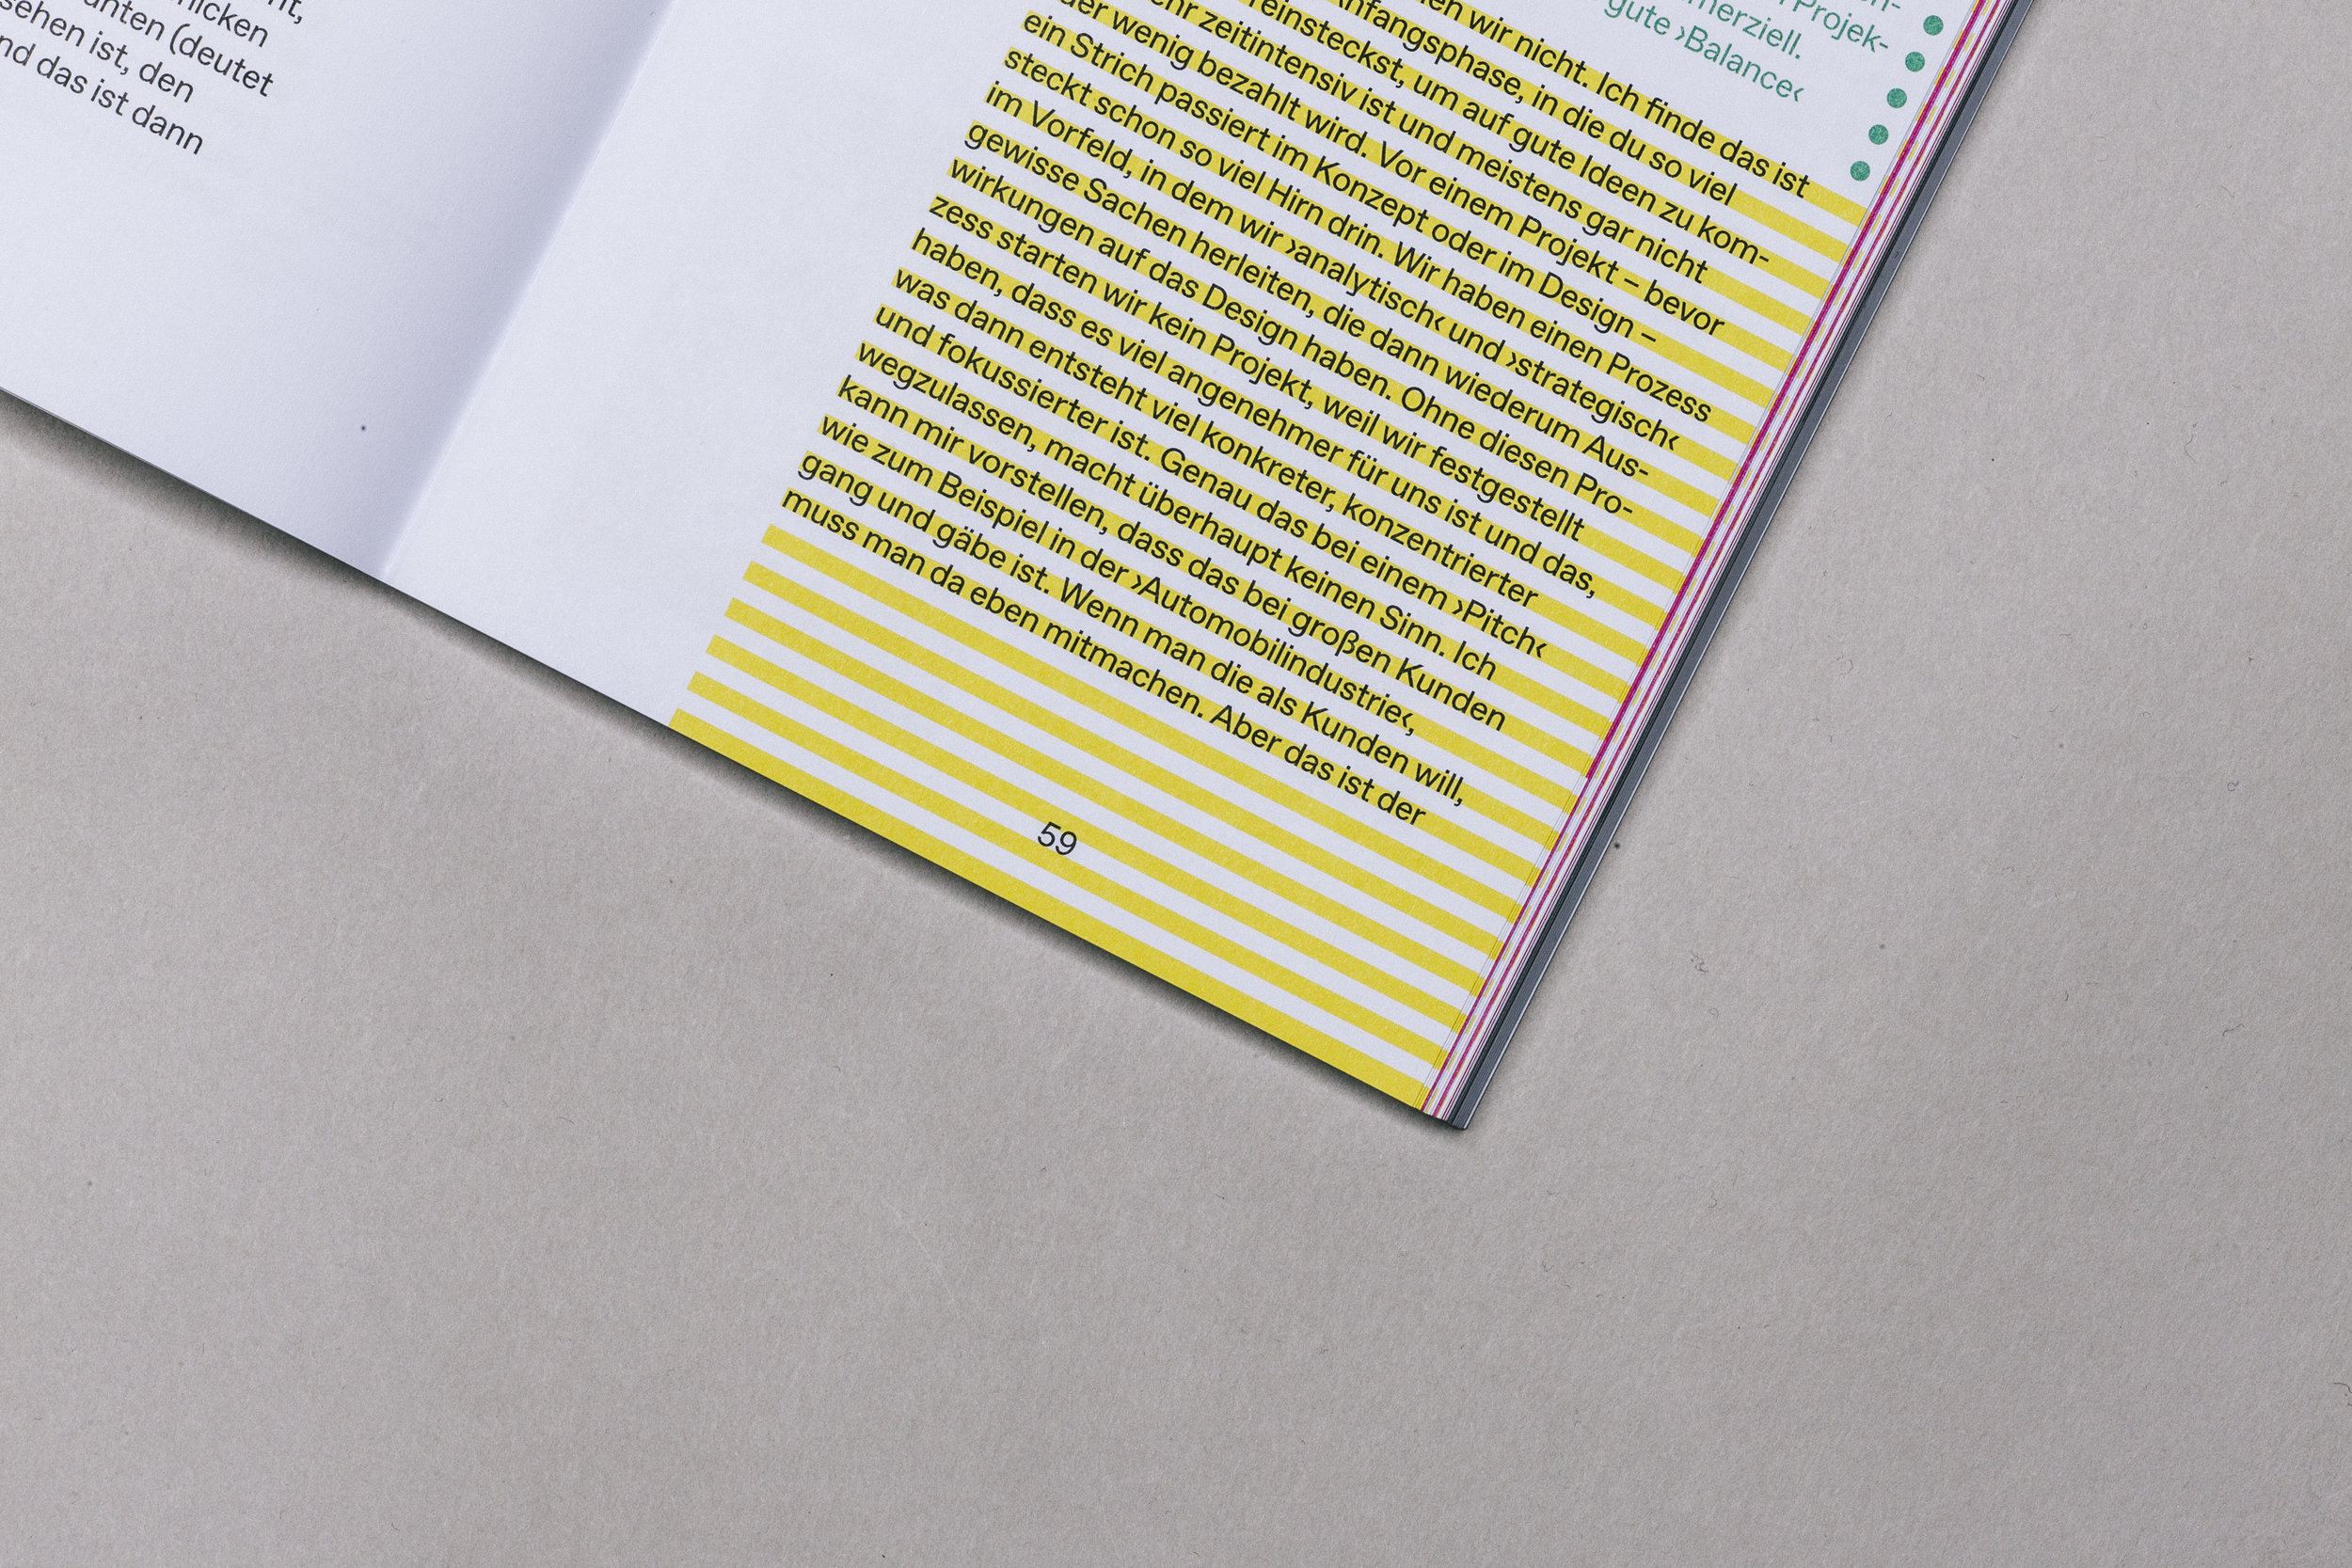 unten (deutet
sehen ist, den
das ist dann
Projek-
gute ›Balance‹
wir nicht. Ich finde das ist
Anfangsphase, in die du so viel
reinsteckst, um auf gute Ideen zu kom-
zeitintensiv ist und meistens gar nicht
der wenig bezahlt wird. Vor einem Projekt – bevor
ein Strich passiert im Konzept oder im Design –
steckt schon so viel Hirn drin. Wir haben einen Prozess
im Vorfeld, in dem wir ›analytisch‹ und ›strategisch‹
gewisse Sachen herleiten, die dann wiederum Aus-
wirkungen auf das Design haben. Ohne diesen Pro-
zess starten wir kein Projekt, weil wir festgestellt
haben, dass es viel angenehmer für uns ist und das,
was dann entsteht viel konkreter, konzentrierter
und fokussierter ist. Genau das bei einem ›Pitch‹
wegzulassen, macht überhaupt keinen Sinn. Ich
kann mir vorstellen, dass das bei großen Kunden
wie zum Beispiel in der ›Automobilindustrie‹,
gang und gäbe ist. Wenn man die als Kunden will,
muss man da eben mitmachen. Aber das ist der
59